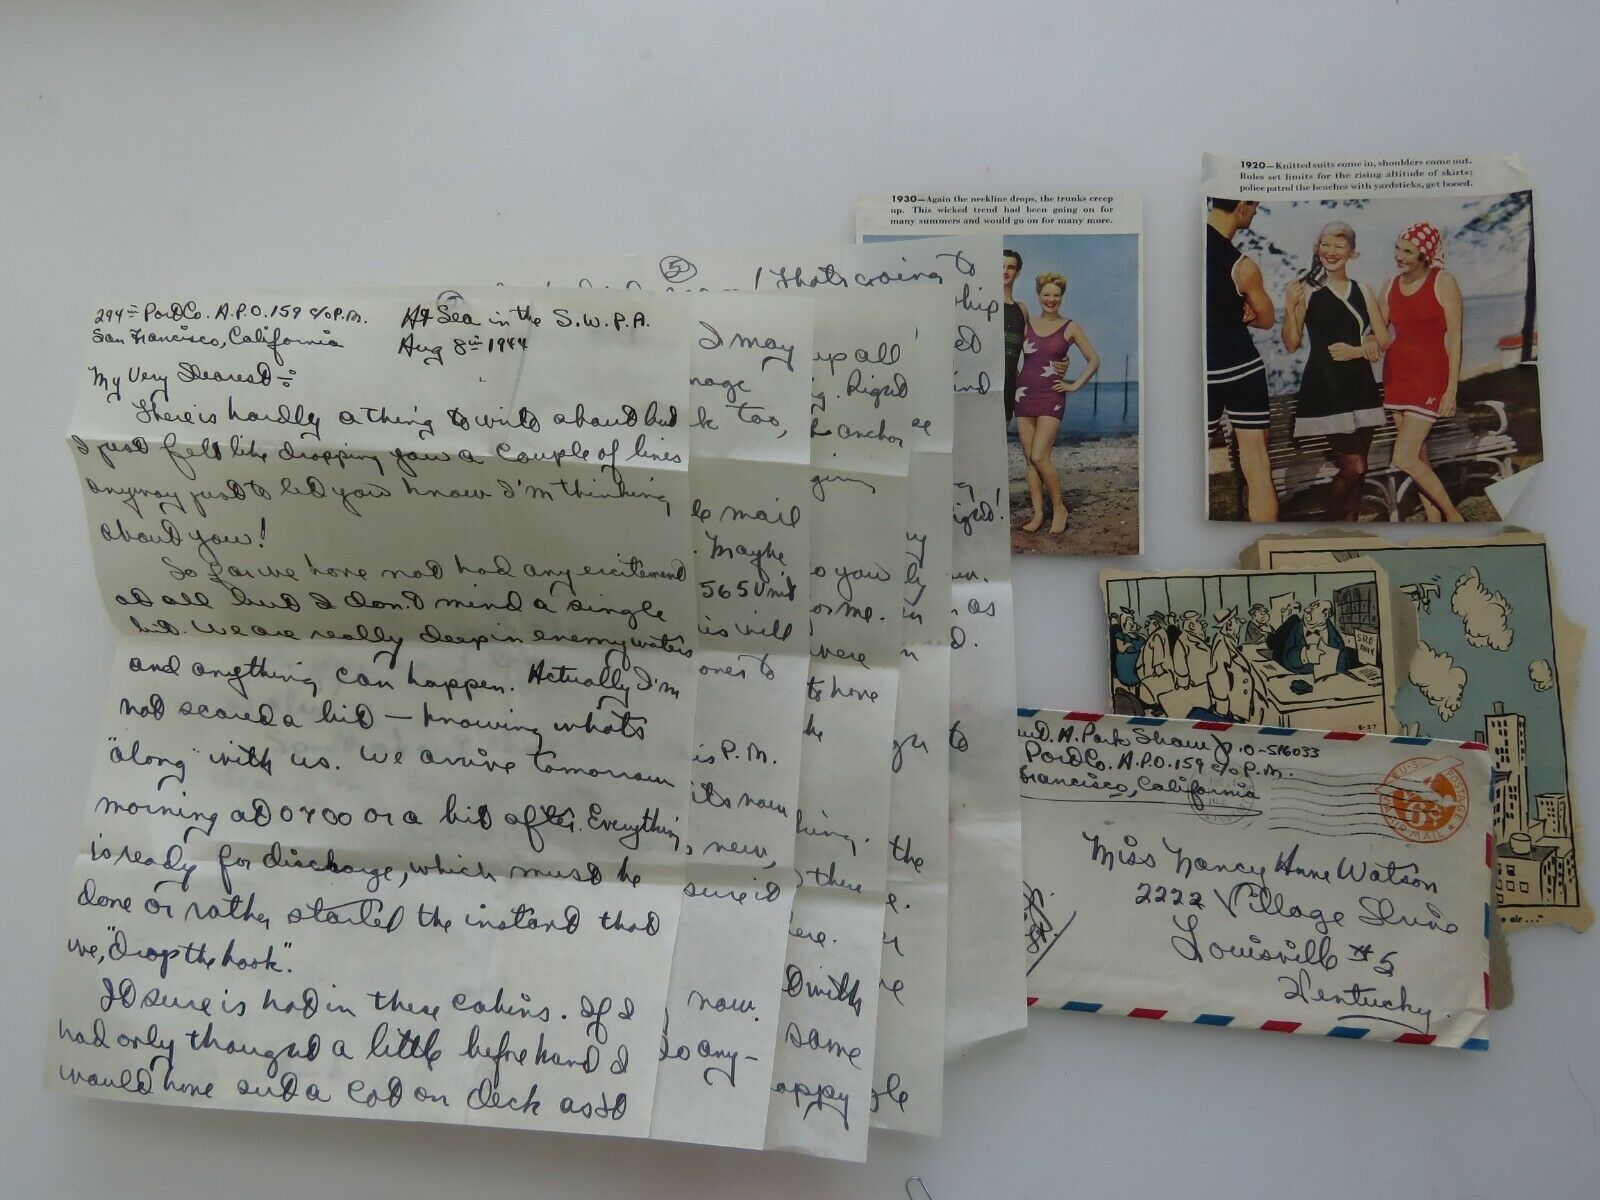 294th PordCo. A.P.O. 159 c/o P.M.
San Francisco, California
At Sea in the S.W.P.A.
Aug 8th 1944
My Very Dearest:
There is hardly a thing to write about but
I just felt like dropping you a couple of lines
anyway just to let you know I'm thinking
about you!
So far we have not had any excitement
at all but I don't mind a single
bit. We are really deep in enemy waters
and anything can happen. Actually I'm
not scared a bit — knowing whats
"along" with us. We arrive tomorrow
morning at 0700 or a bit after. Everything
is ready for discharge, which must be
done or rather started the instant that
we, "drop the hook".
It sure is hot in these cabins. If I
had only thought a little before hand I
would have set a cot on deck as it
I may
nage
k too,
mail
. Maybe
565 Unit
is will
ones to
is P.M.
its now
new,
sure it
now.
to any-
up all
. Right
anchor
ging
to you
or me.
were
to have
he
hing.
there
here.
with
same
happy
the
5
! Thats going to
ship
as
to
1930—Again the neckline drops, the trunks creep
up. This wicked trend had been going on for
many summers and would go on for many more.
1920—Knitted suits come in, shoulders come out.
Rules set limits for the rising altitude of skirts;
police patrol the beaches with yardsticks, get booed.
SRO
ONLY
5-27
e air..."
A. Park Shaw Jr. O-516033
PordCo. A.P.O. 159 c/o P.M.
Francisco, California
U.S. POSTAGE
6¢
AIR MAIL
Miss Nancy Anne Watson
2222 Village Drive
Louisville #5
Kentucky.